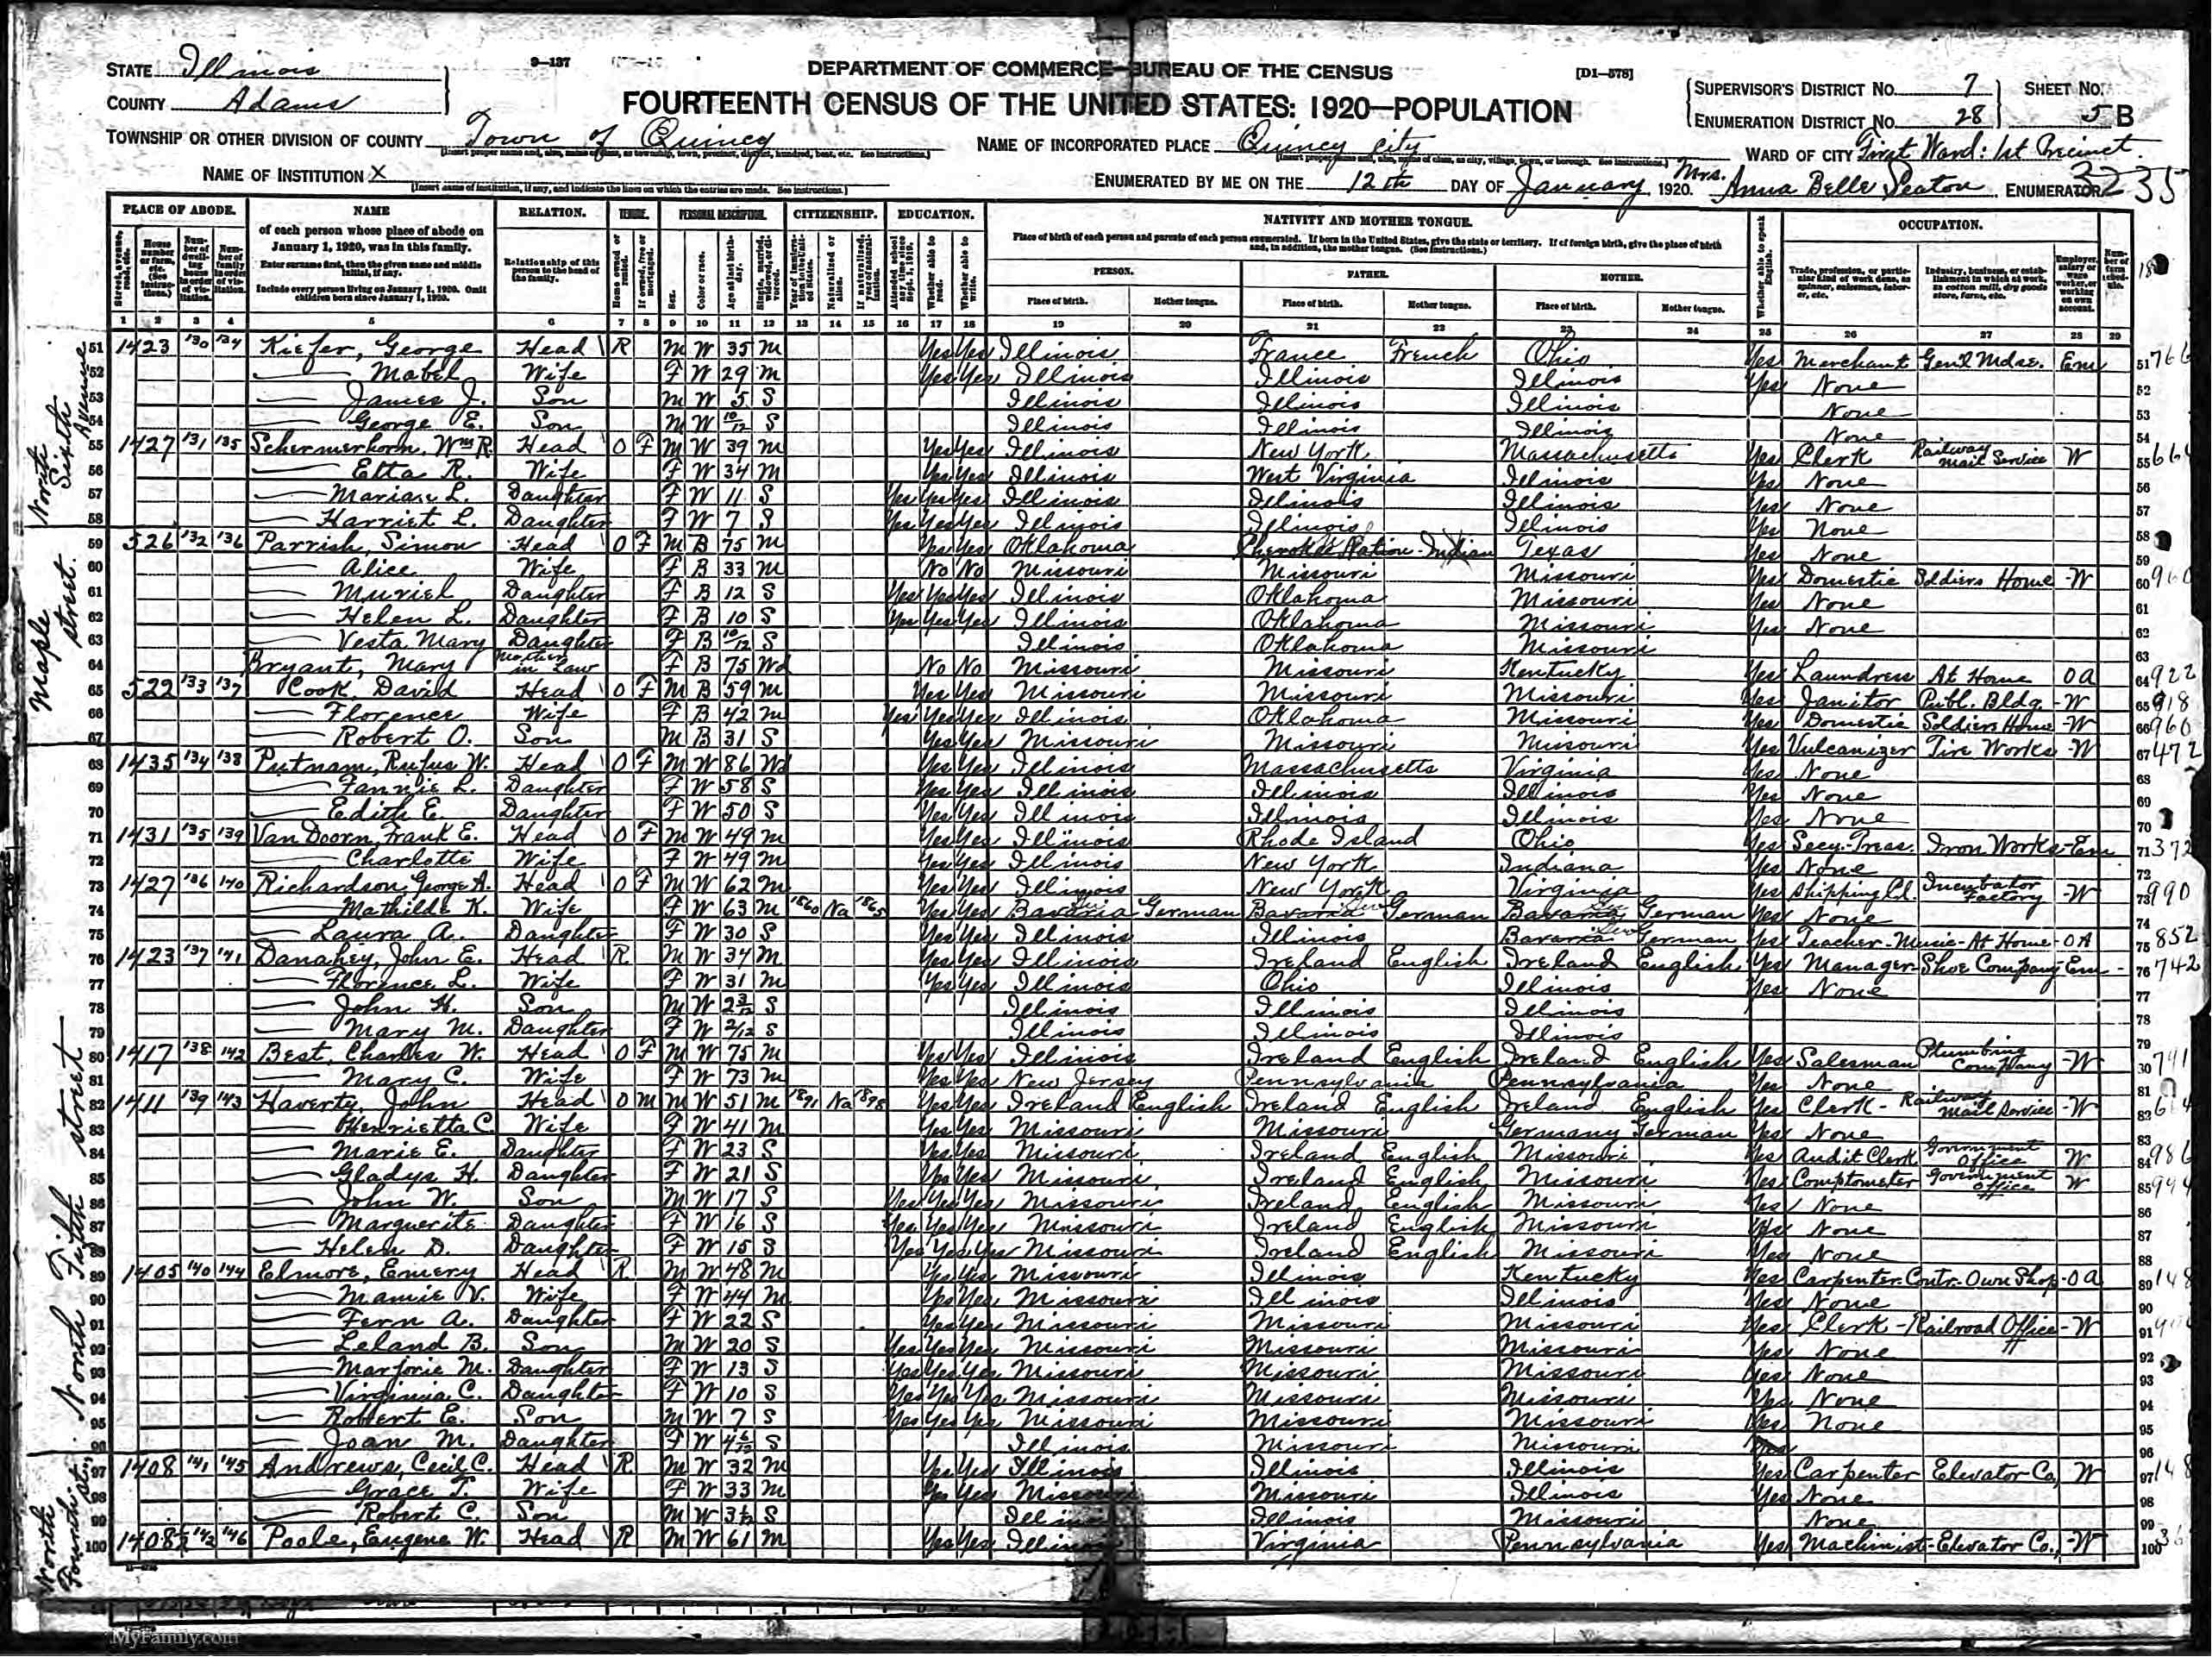 9—137
DEPARTMENT OF COMMERCE—BUREAU OF THE CENSUS
[D1—578]
STATE Illinois
COUNTY Adams
FOURTEENTH CENSUS OF THE UNITED STATES: 1920—POPULATION
SUPERVISOR'S DISTRICT No. 7 SHEET No.
ENUMERATION DISTRICT No. 28 5 B
TOWNSHIP OR OTHER DIVISION OF COUNTY Town of Quincy
NAME OF INCORPORATED PLACE Quincy City
WARD OF CITY First Ward: 1st Precinct.
NAME OF INSTITUTION X
[Insert name of institution, if any, and indicate the lines on which the entries are made. See instructions.]
ENUMERATED BY ME ON THE 12th DAY OF January, 1920. Mrs. Anna Belle Seaton ENUMERATOR
3235
PLACE OF ABODE. NAME RELATION. TENURE. PERSONAL DESCRIPTION. CITIZENSHIP. EDUCATION. NATIVITY AND MOTHER TONGUE. OCCUPATION.
of each person whose place of abode on January 1, 1920, was in this family.
Enter surname first, then the given name and middle initial, if any.
Include every person living on January 1, 1920. Omit children born since January 1, 1920.
Relationship of this person to the head of the family.
Place of birth of each person and parents of each person enumerated. If born in the United States, give the state or territory. If of foreign birth, give the place of birth and, in addition, the mother tongue. (See instructions.)
PERSON. FATHER. MOTHER.
Place of birth. Mother tongue. Place of birth. Mother tongue. Place of birth. Mother tongue.
1 2 3 4 5 6 7 8 9 10 11 12 13 14 15 16 17 18 19 20 21 22 23 24 25 26 27 28 29
North Sixth Avenue
51 1423 130 134 Kiefer, George Head R M W 35 M Yes Yes Illinois France French Ohio Yes Merchant Gen'l Mdse. Em 51 766
52 — Mabel Wife F W 29 M Yes Yes Illinois Illinois Illinois Yes None 52
53 — James J. Son M W 5 S Illinois Illinois Illinois None 53
54 — George E. Son M W 10/12 S Illinois Illinois Illinois None 54
55 1427 131 135 Schermerhorn, Wm R. Head O F M W 39 M Yes Yes Illinois New York Massachusetts Yes Clerk Railway Mail Service W 55
56 — Etta R. Wife F W 34 M Yes Yes Illinois West Virginia Illinois Yes None 56
57 — Marian L. Daughter F W 11 S Yes Yes Yes Illinois Illinois Illinois Yes None 57
58 — Harriet L. Daughter F W 7 S Yes Yes Yes Illinois Illinois Illinois Yes None 58
Maple street.
59 526 132 136 Parrish, Simon Head O F M B 75 M Yes Yes Oklahoma Cherokee Nation-Indian Texas Yes None 59
60 — Alice Wife F B 33 M No No Missouri Missouri Missouri Yes Domestic Soldiers Home -W 60 960
61 — Muriel Daughter F B 12 S Yes Yes Yes Illinois Oklahoma Missouri Yes None 61
62 — Helen L. Daughter F B 10 S Yes Yes Yes Illinois Oklahoma Missouri Yes None 62
63 — Vesta Mary Daughter F B 10/12 S Illinois Oklahoma Missouri 63
64 Bryant, Mary Mother in Law F B 75 Wd No No Missouri Missouri Kentucky Yes Laundress At Home OA 64 922
65 522 133 137 Cook, David Head O F M B 59 M Yes Yes Missouri Missouri Missouri Yes Janitor Publ. Bldg. -W 65 918
66 — Florence Wife F B 42 M Yes Yes Yes Illinois Oklahoma Missouri Yes Domestic Soldiers Home -W 66 960
67 — Robert O. Son M B 31 S Yes Yes Missouri Missouri Missouri Yes Vulcanizer Tire Works -W 67 472
North Fifth street
68 1435 134 138 Putnam, Rufus W. Head O F M W 86 Wd Yes Yes Illinois Massachusetts Virginia Yes None 68
69 — Fannie L. Daughter F W 58 S Yes Yes Illinois Illinois Illinois Yes None 69
70 — Edith E. Daughter F W 50 S Yes Yes Illinois Illinois Illinois Yes None 70
71 1431 135 139 Van Doorn, Frank E. Head O F M W 49 M Yes Yes Illinois Rhode Island Ohio Yes Secy-Treas. Iron Works-Em 71 372
72 — Charlotte Wife F W 49 M Yes Yes Illinois New York Indiana Yes None 72
73 1427 136 140 Richardson, George A. Head O F M W 62 M Yes Yes Illinois New York Virginia Yes Shipping Cl. Incubator Factory -W 73 990
74 — Mathilde K. Wife F W 63 M 1860 Na 1865 Yes Yes Bavaria German Bavaria German Bavaria German Yes None 74
75 — Laura A. Daughter F W 30 S Yes Yes Illinois Illinois Bavaria German Yes Teacher-Music-At Home-OA 75 852
76 1423 137 141 Danahey, John E. Head R M W 34 M Yes Yes Illinois Ireland English Ireland English Yes Manager-Shoe Company Em - 76 742
77 — Florence L. Wife F W 31 M Yes Yes Illinois Ohio Illinois Yes None 77
78 — John H. Son M W 2 3/12 S Illinois Illinois Illinois 78
79 — Mary M. Daughter F W 2/12 S Illinois Illinois Illinois 79
80 1417 138 142 Best, Charles W. Head O F M W 75 M Yes Yes Illinois Ireland English Ireland English Yes Salesman Plumbing Company -W 80
81 — Mary C. Wife F W 73 M Yes Yes New Jersey Pennsylvania Pennsylvania Yes None 81
82 1411 139 143 Haverty, John Head O M M W 51 M 1891 Na 1898 Yes Yes Ireland English Ireland English Ireland English Yes Clerk - Railway Mail Service -W 82
83 — Henrietta C. Wife F W 41 M Yes Yes Missouri Missouri Germany German Yes None 83
84 — Marie E. Daughter F W 23 S Yes Yes Missouri Ireland English Missouri Yes Audit Clerk Government Office W 84 986
85 — Gladys H. Daughter F W 21 S Yes Yes Missouri Ireland English Missouri Yes Comptometer Government Office W 85
86 — John W. Son M W 17 S Yes Yes Yes Missouri Ireland English Missouri Yes None 86
87 — Marguerite Daughter F W 16 S Yes Yes Yes Missouri Ireland English Missouri Yes None 87
88 — Helen D. Daughter F W 15 S Yes Yes Yes Missouri Ireland English Missouri Yes None 88
89 1405 140 144 Elmore, Emery Head R M W 48 M Yes Yes Missouri Illinois Kentucky Yes Carpenter Contr-Own Shop-OA 89 148
90 — Mamie V. Wife F W 44 M Yes Yes Missouri Illinois Illinois Yes None 90
91 — Fern A. Daughter F W 22 S Yes Yes Missouri Missouri Missouri Yes Clerk - Railroad Office -W 91
92 — Leland B. Son M W 20 S Yes Yes Yes Missouri Missouri Missouri Yes None 92
93 — Marjorie M. Daughter F W 13 S Yes Yes Yes Missouri Missouri Missouri Yes None 93
94 — Virginia C. Daughter F W 10 S Yes Yes Yes Missouri Missouri Missouri Yes None 94
95 — Robert E. Son M W 7 S Yes Yes Yes Missouri Missouri Missouri Yes None 95
96 — Joan M. Daughter F W 4 6/12 S Illinois Missouri Missouri 96
North Fourth St.
97 1408 141 145 Andrews, Cecil C. Head R M W 32 M Yes Yes Illinois Illinois Illinois Yes Carpenter Elevator Co, W 97 148
98 — Grace T. Wife F W 33 M Yes Yes Missouri Missouri Illinois Yes None 98
99 — Robert C. Son M W 3 S Illinois Illinois Missouri None 99
100 1408½ 142 146 Poole, Eugene W. Head R M W 61 M Yes Yes Illinois Virginia Pennsylvania Yes Machinist-Elevator Co., -W 100
MyFamily.com